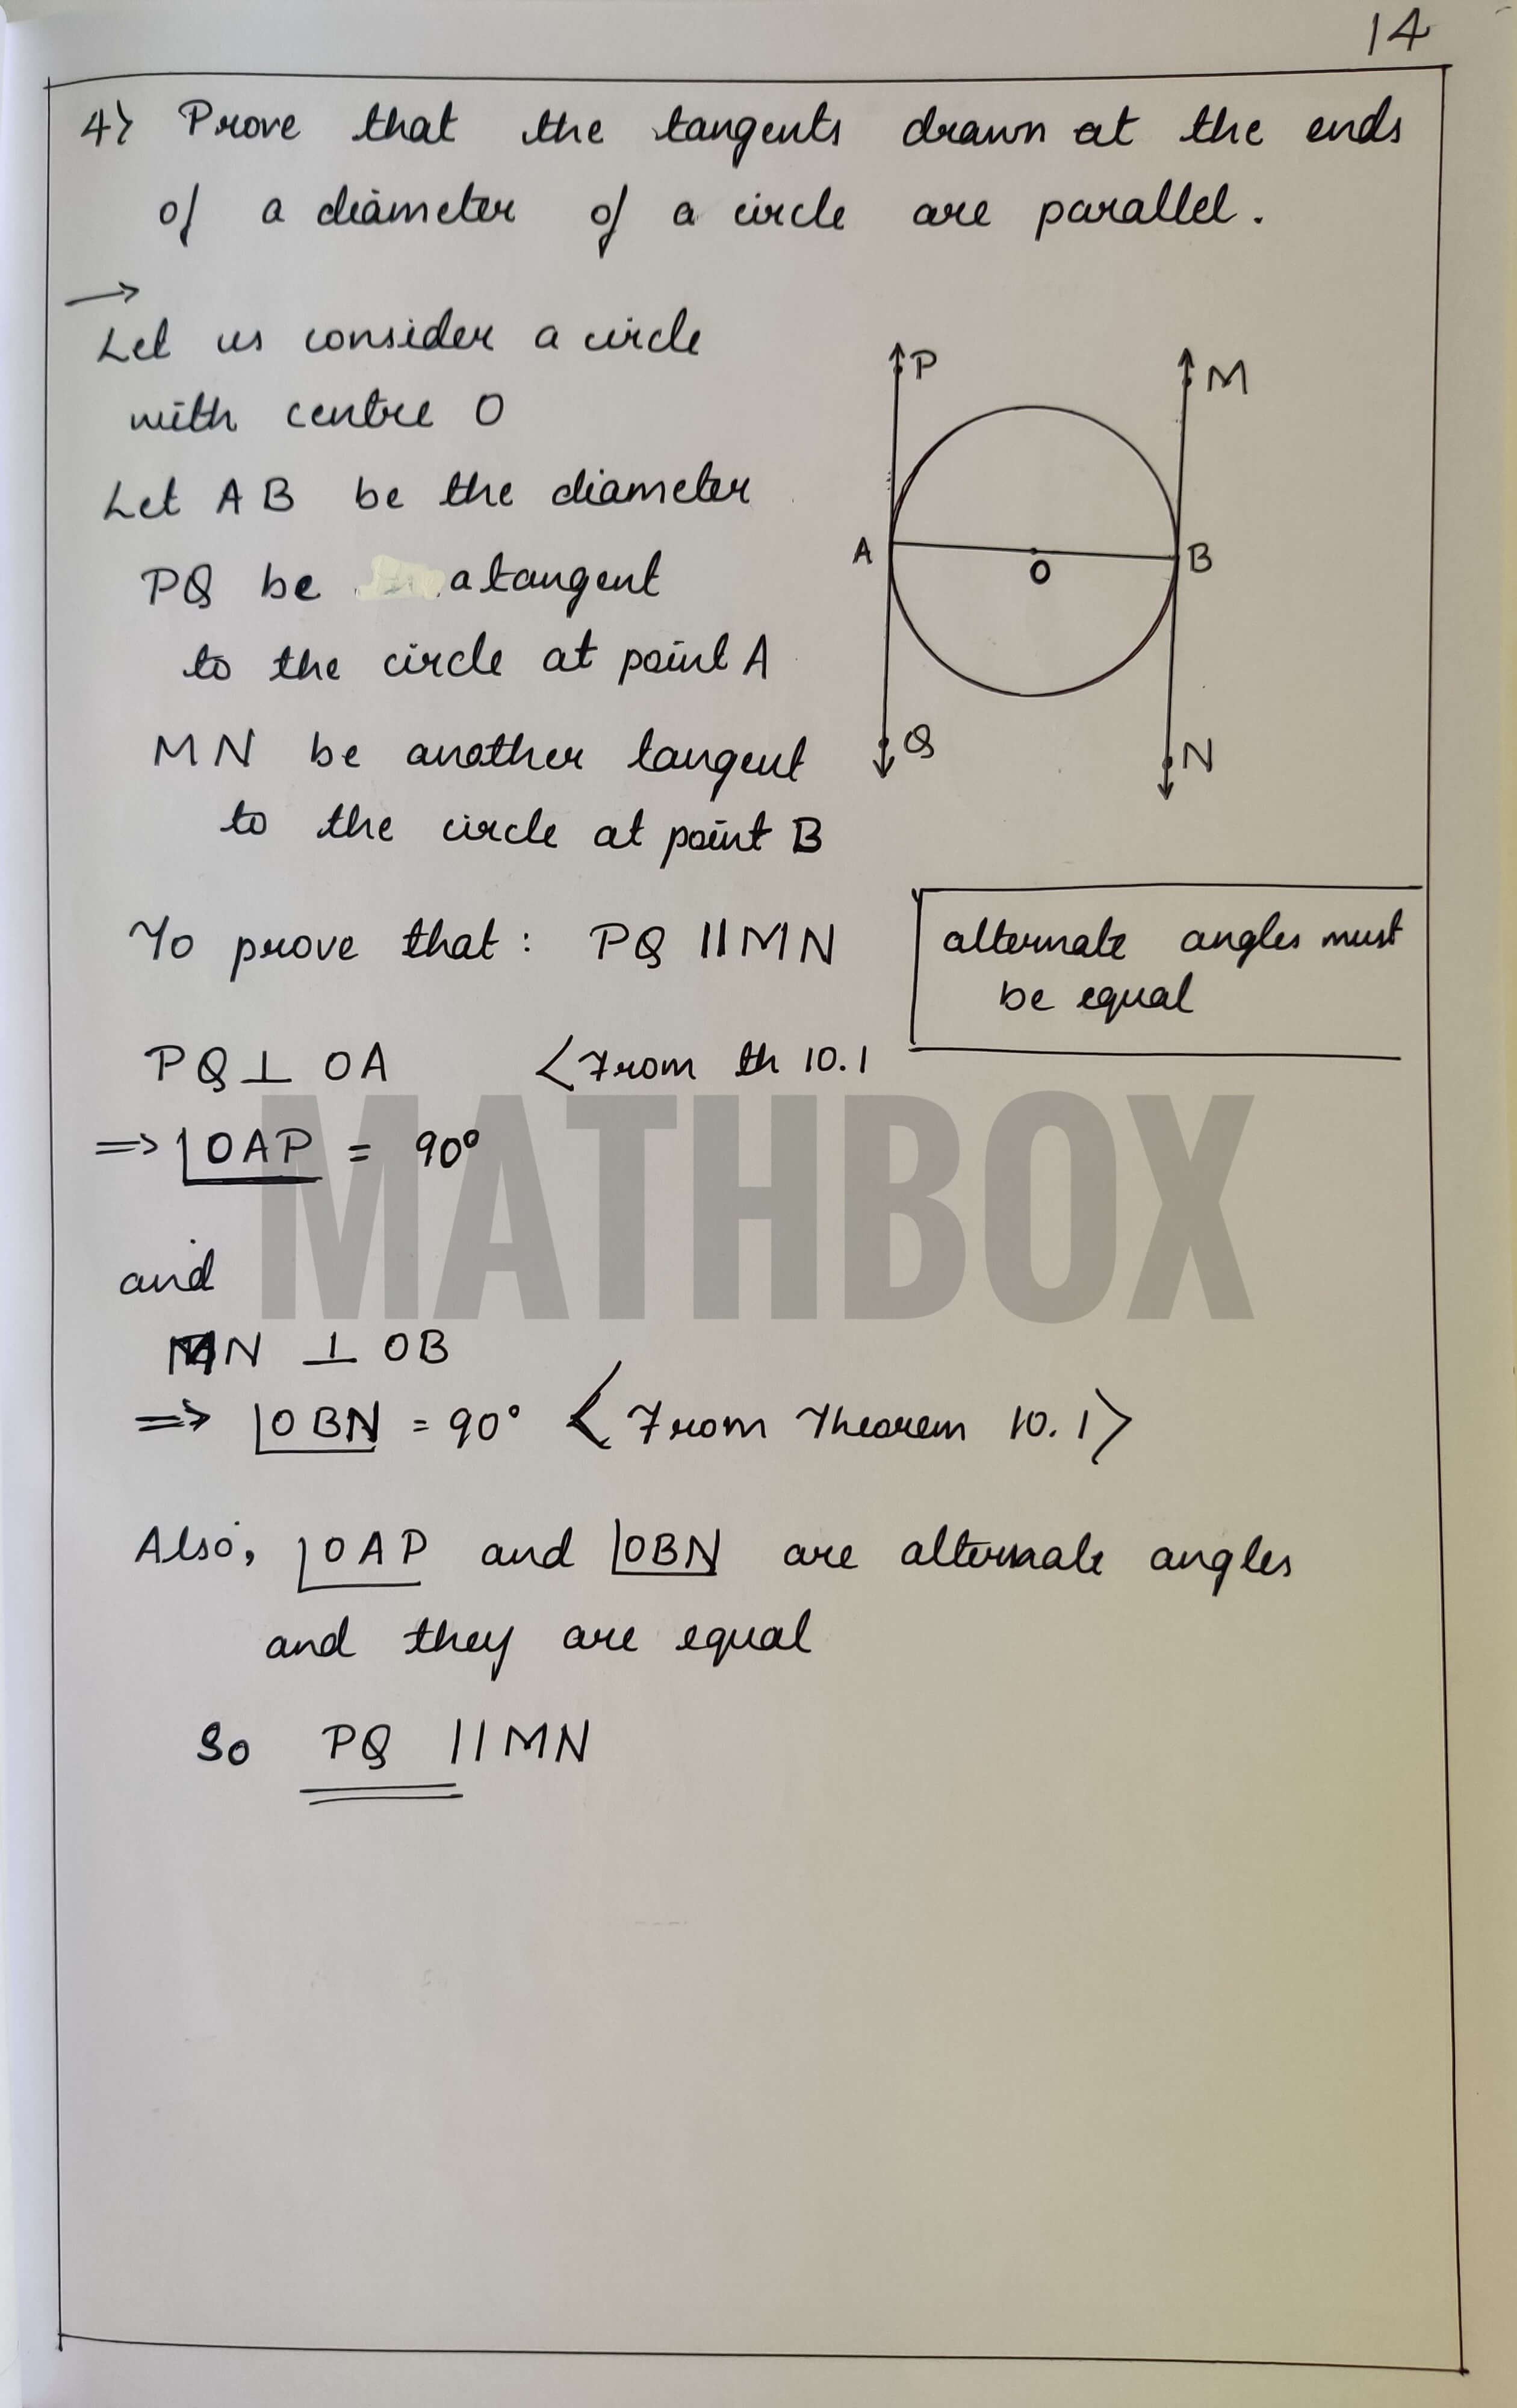 14
4> Prove that the tangents drawn at the ends
of a diameter of a circle are parallel.
→
Let us consider a circle
with centre O
Let AB be the diameter
PQ be a tangent
to the circle at point A
MN be another tangent
to the circle at point B
P
M
A
O
B
Q
N
To prove that : PQ || MN
alternate angles must
be equal
PQ ⊥ OA <From th 10.1
MATHBOX
=> ∠OAP = 90°
and
MN ⊥ OB
=> ∠OBN = 90° <From Theorem 10.1>
Also, ∠OAP and ∠OBN are alternate angles
and they are equal
So PQ || MN